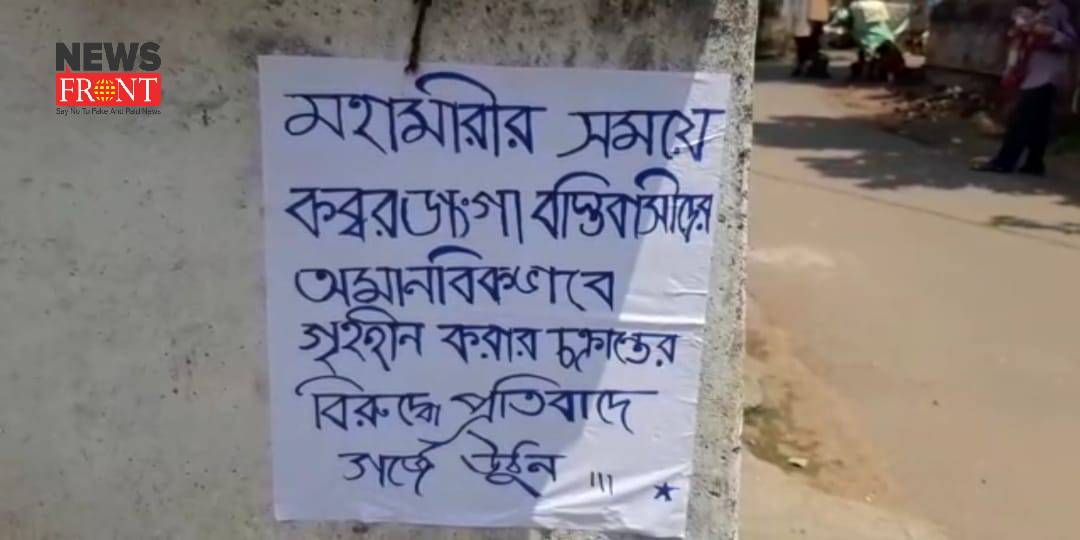 NEWS
FRONT
Say No To Fake And Paid News
মহামারীর সময়ে
কবরডাংগা বস্তিবাসীদের
অমানবিকভাবে
গৃহহীন করার চক্রান্তের
বিরুদ্ধে প্রতিবাদে
গর্জে উঠুন !!!